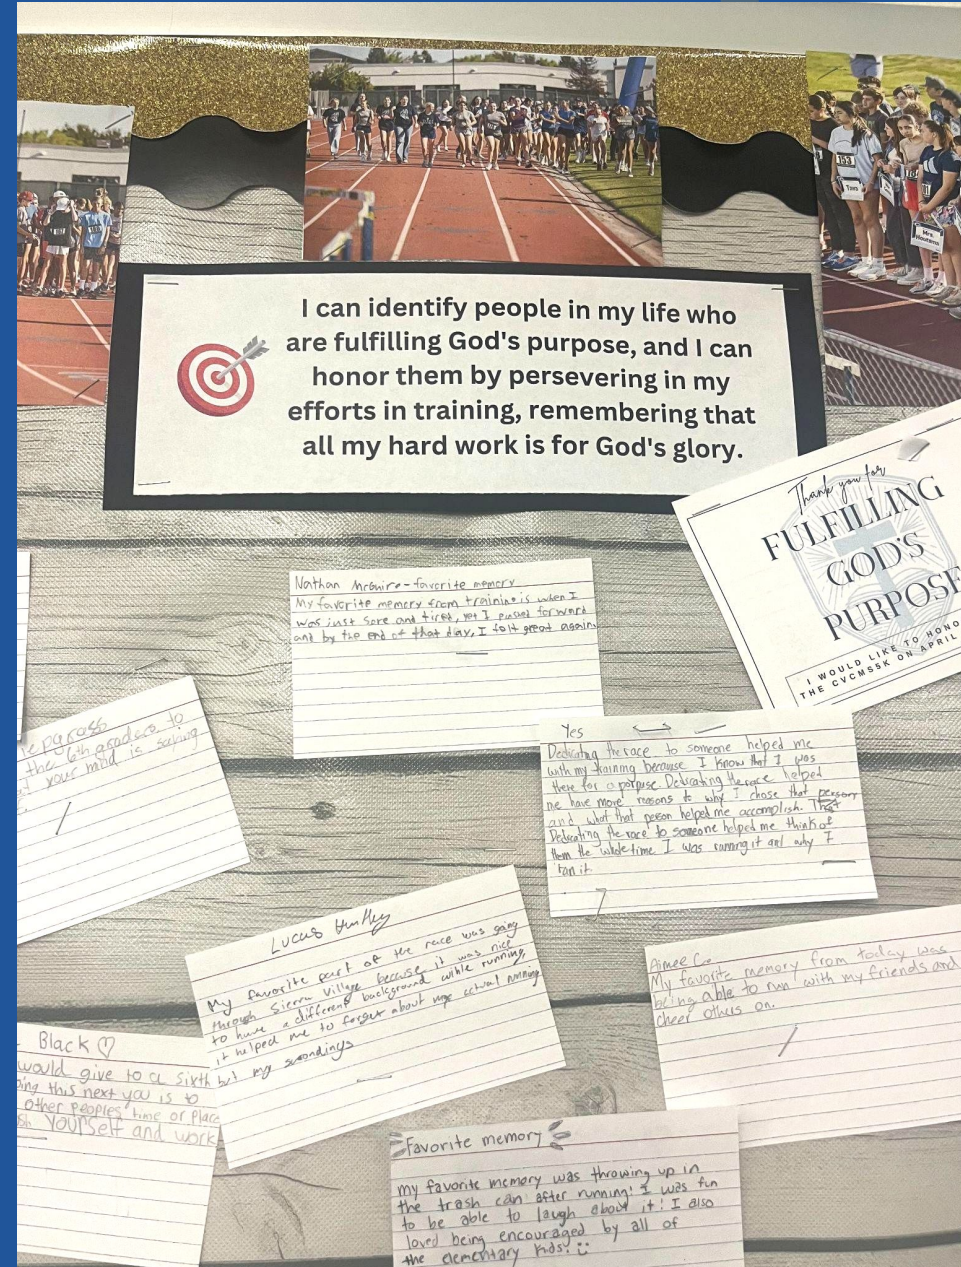 153
Tayo
Mrs.
I can identify people in my life who
are fulfilling God's purpose, and I can
honor them by persevering in my
efforts in training, remembering that
all my hard work is for God's glory.
Thank you for
FULFILLING
GOD'S
PURPOSE
I WOULD LIKE TO HONO
THE CVCMSSK ON APRIL
Nathan McGuire-favorite memory
My favorite memory from training is when I
was just sore and tired, yet I pused forword
and by the end of that day, I felt great again.
lepgrass
the 6th graders to
your mind is saking
Yes
Dedicating the race to someone helped me
with my training because I know that I was
there for a porpuse. Dedicating the race helped
me have more reasons to why I chose that person
and what that person helped me accomplish. That
Dedicating the race to someone helped me think of
them the whole time I was running it and why I
ran it.
Lucas Huntley
My favorite part of the race was going
through Sierra Village because it was nice
to have a different background while running,
it helped me to forget about my actual running
but my suroondings
Aimee C.
My favorite memory from today was
being able to run with my friends and
cheer others on.
Black ♡
would give to a sixth
ing this next you is to
other peoples' time or place
sh yourself and work
Favorite memory
my favorite memory was throwing up in
the trash can after running! I was fun
to be able to laugh about it! I also
loved being encouraged by all of
the elementary kids!